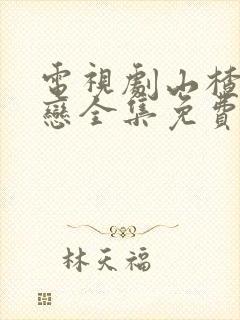 電視劇山楂
戀全集免費
林天福